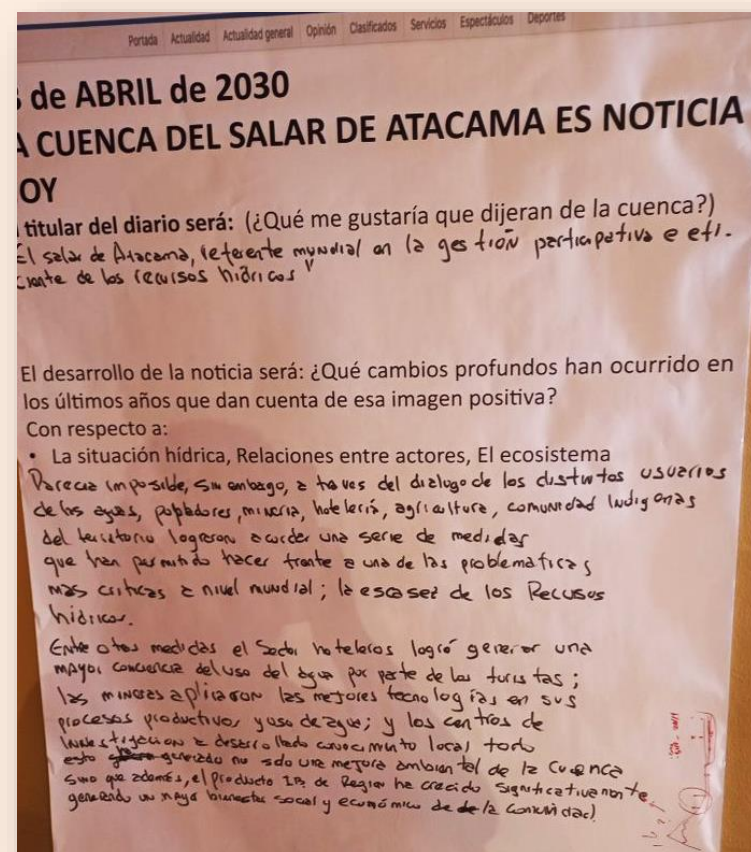 Portada Actualidad Actualidad general Opinión Clasificados Servicios Espectáculos Deportes
de ABRIL de 2030
A CUENCA DEL SALAR DE ATACAMA ES NOTICIA
OY
titular del diario será: (¿Qué me gustaría que dijeran de la cuenca?)
El salar de Atacama, referente mundial en la gestión participativa e efi-
ciente de los recursos hídricos
El desarrollo de la noticia será: ¿Qué cambios profundos han ocurrido en
los últimos años que dan cuenta de esa imagen positiva?
Con respecto a:
• La situación hídrica, Relaciones entre actores, El ecosistema
Parecia imposible, sin embargo, a traves del dialogo de los distintos usuarios
de las aguas, pobladores, mineria, hoteleria, agricultura, comunidad indigenas
del territorio lograron acordar una serie de medidas
que han permitido hacer frente a una de las problematicas
mas criticas a nivel mundial; la escasez de los Recusos
hidricos.
Entre otras medidas el Sector hoteleros logró generar una
mayor conciencia del uso del agua por parte de los turistas;
las mineras aplicaron las mejores tecnologías en sus
procesos productivos y uso de agua; y los centros de
investigacion a desarrollado conocimiento local todo
esto generado no solo una mejora ambiental de la Cuenca
Sino que además, el producto de Region ha crecido significativamente,
generando un mayor bienestar social y económico de la comunidad.